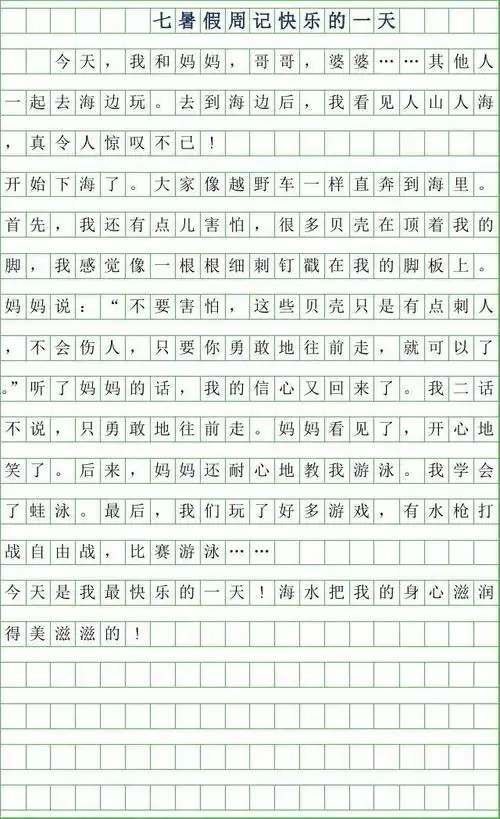 七暑假周记快乐的一天
今天，我和妈妈，哥哥，婆婆……其他人
一起去海边玩。去到海边后，我看见人山人海
，真令人惊叹不已！
开始下海了。大家像越野车一样直奔到海里。
首先，我还有点儿害怕，很多贝壳在顶着我的
脚，我感觉像一根根细刺钉戳在我的脚板上。
妈妈说：“不要害怕，这些贝壳只是有点刺人
，不会伤人，只要你勇敢地往前走，就可以了
。”听了妈妈的话，我的信心又回来了。我二话
不说，只勇敢地往前走。妈妈看见了，开心地
笑了。后来，妈妈还耐心地教我游泳。我学会
了蛙泳。最后，我们玩了好多游戏，有水枪打
战自由战，比赛游泳……
今天是我最快乐的一天！海水把我的身心滋润
得美滋滋的！